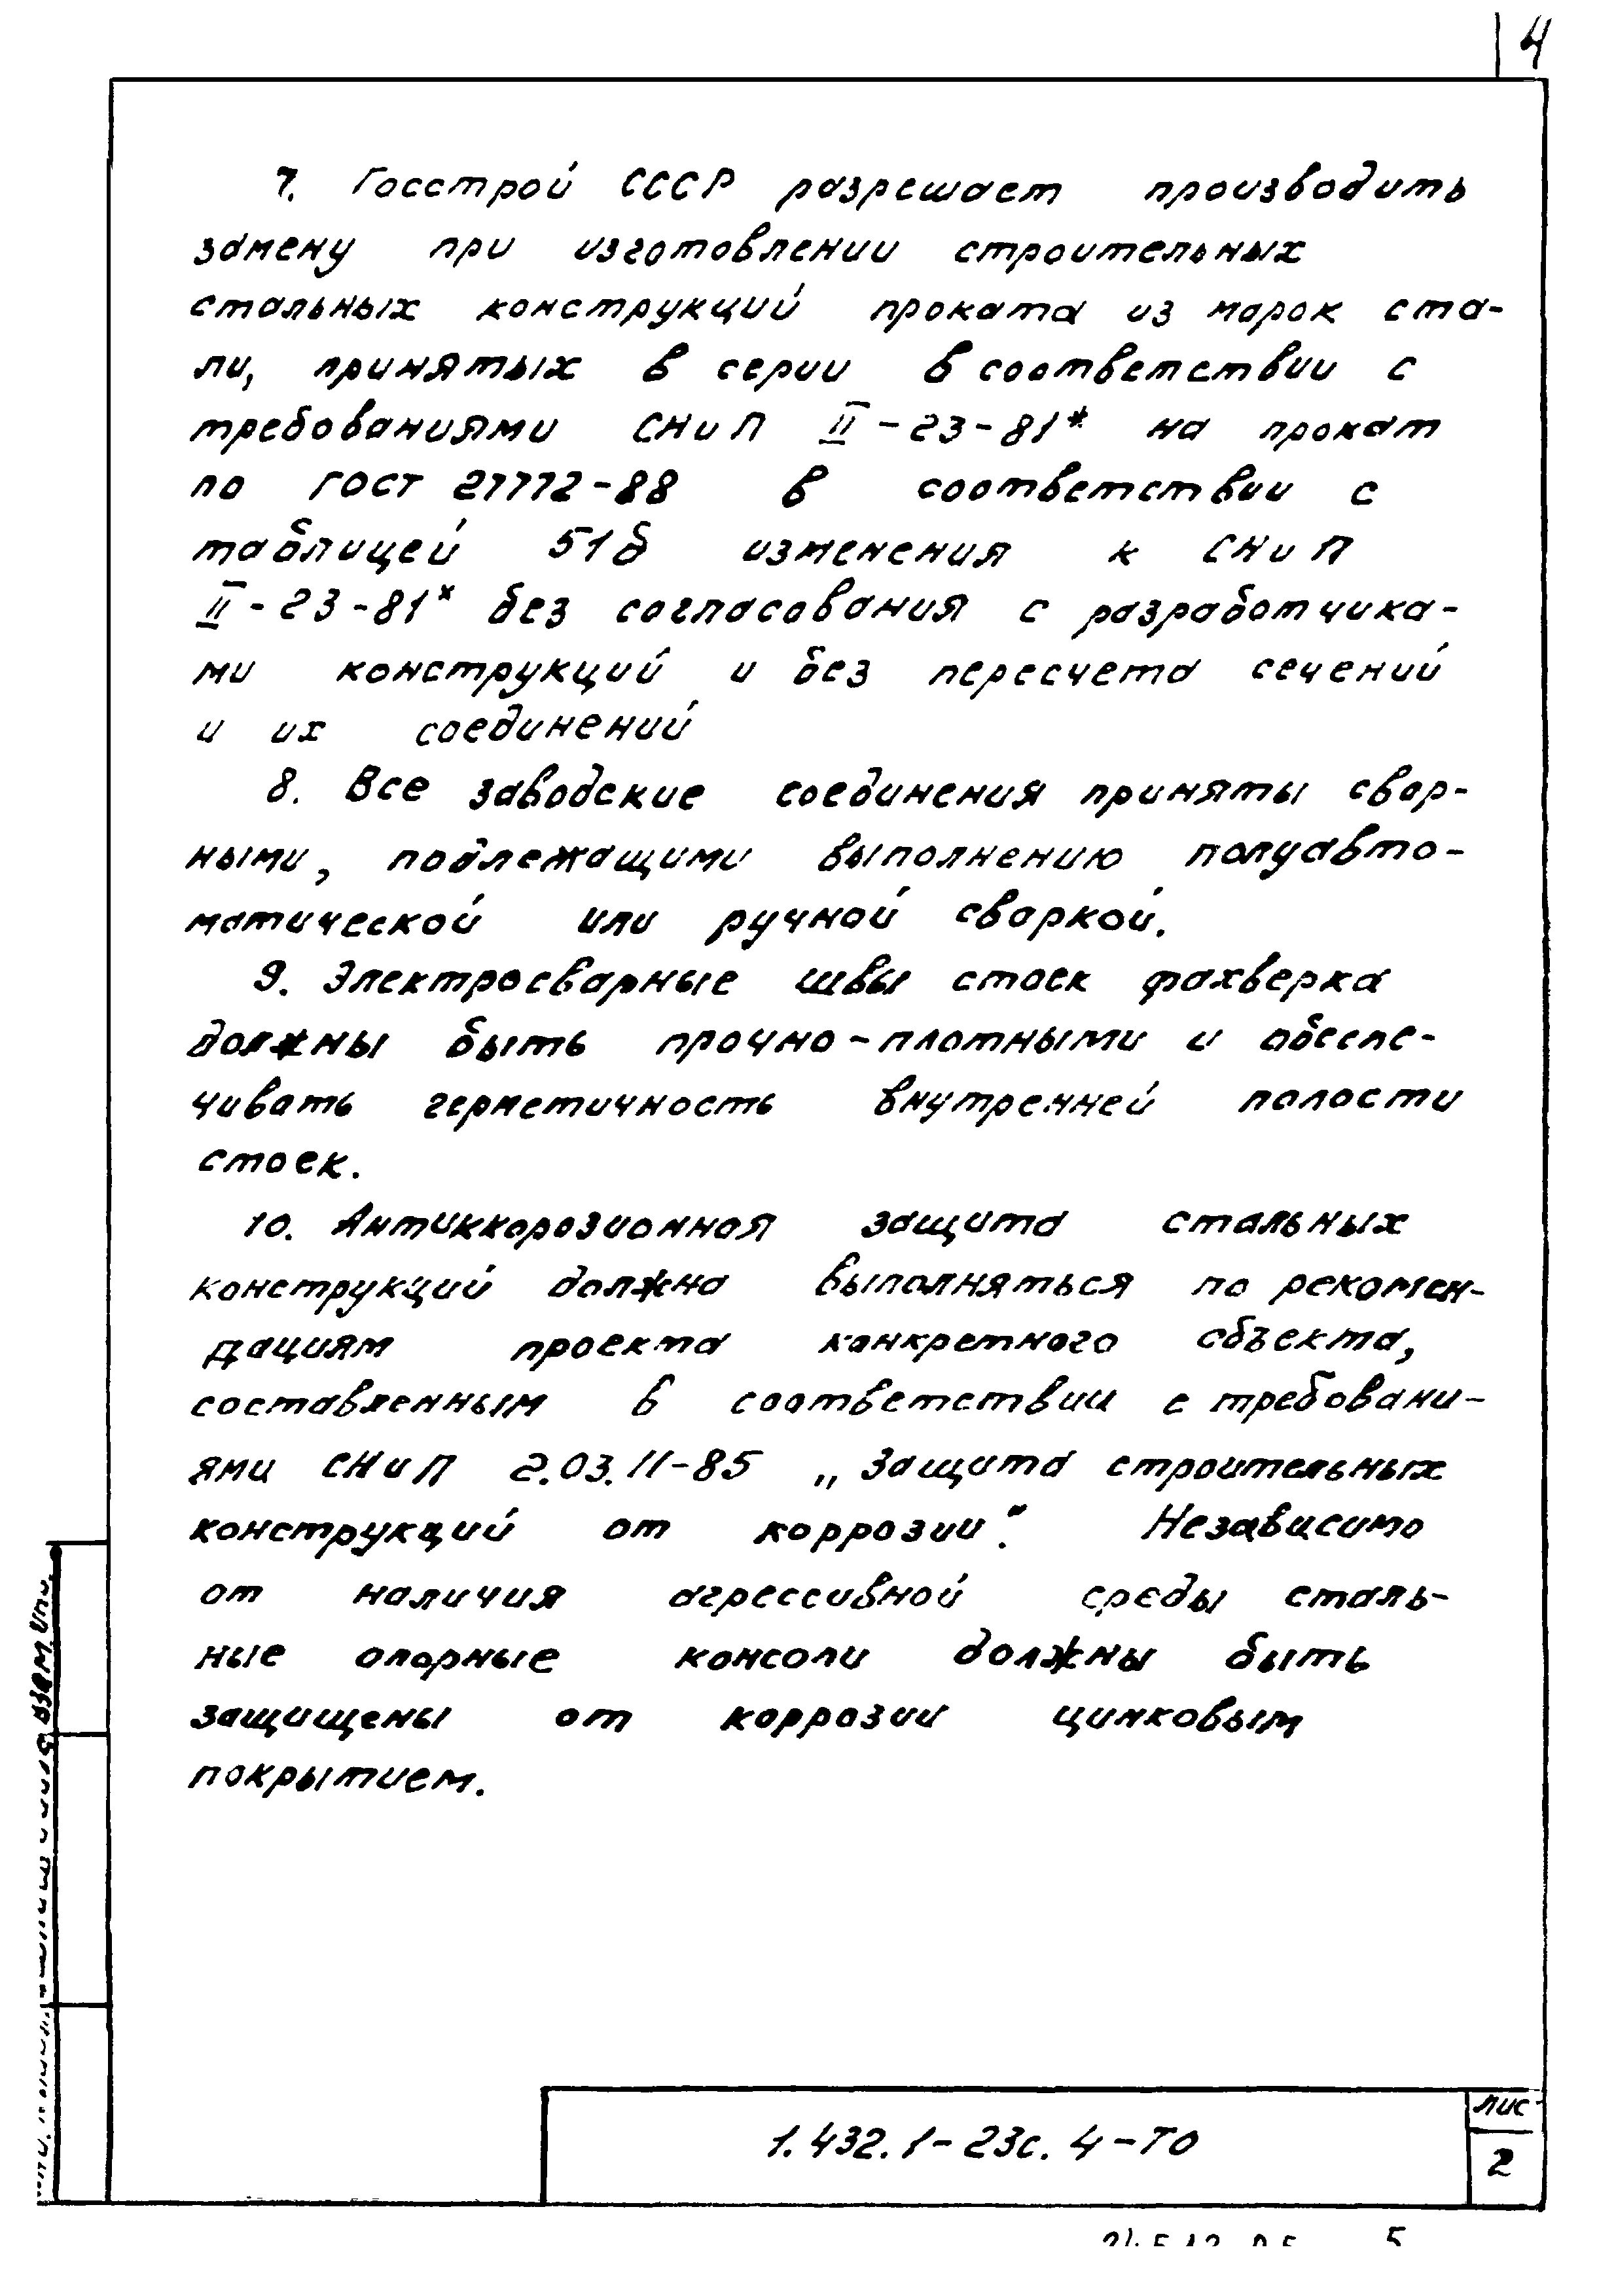 4
7. Госстрой СССР разрешает производить
замену при изготовлении строительных
стальных конструкций проката из марок ста-
ли, принятых в серии в соответствии с
требованиями СНиП II-23-81* на прокат
по ГОСТ 27772-88 в соответствии с
таблицей 51б изменения к СНиП
II-23-81* без согласования с разработчика-
ми конструкций и без пересчета сечений
и их соединений
8. Все заводские соединения приняты свар-
ными, подлежащими выполнению полуавто-
матической или ручной сваркой.
9. Электросварные швы стоек фахверка
должны быть прочно-плотными и обеспе-
чивать герметичность внутренней полости
стоек.
10. Антиккорозионная защита стальных
конструкций должна выполняться по рекомен-
дациям проекта конкретного объекта,
составленным в соответствии с требовани-
ями СНиП 2.03.11-85 „Защита строительных
конструкций от коррозии". Независимо
от наличия агрессивной среды сталь-
ные опорные консоли должны быть
защищены от коррозии цинковым
покрытием.
1.432.1-23с.4-ТО
лис
2
5